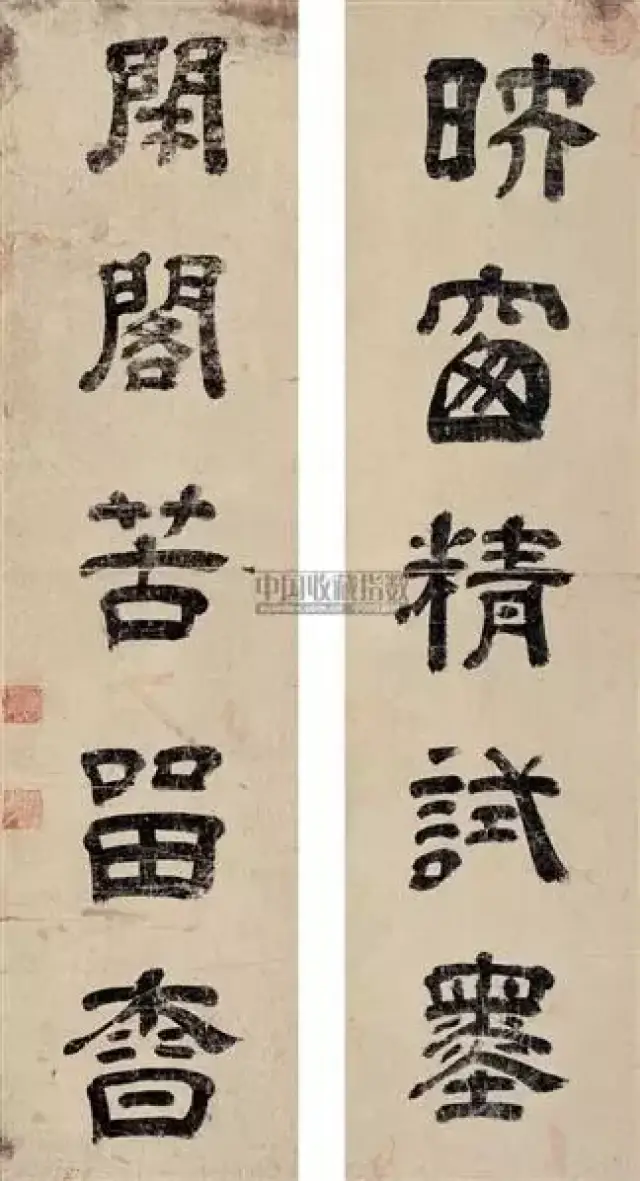 映窗精試墨
閉閣苦留香
中国收藏指数